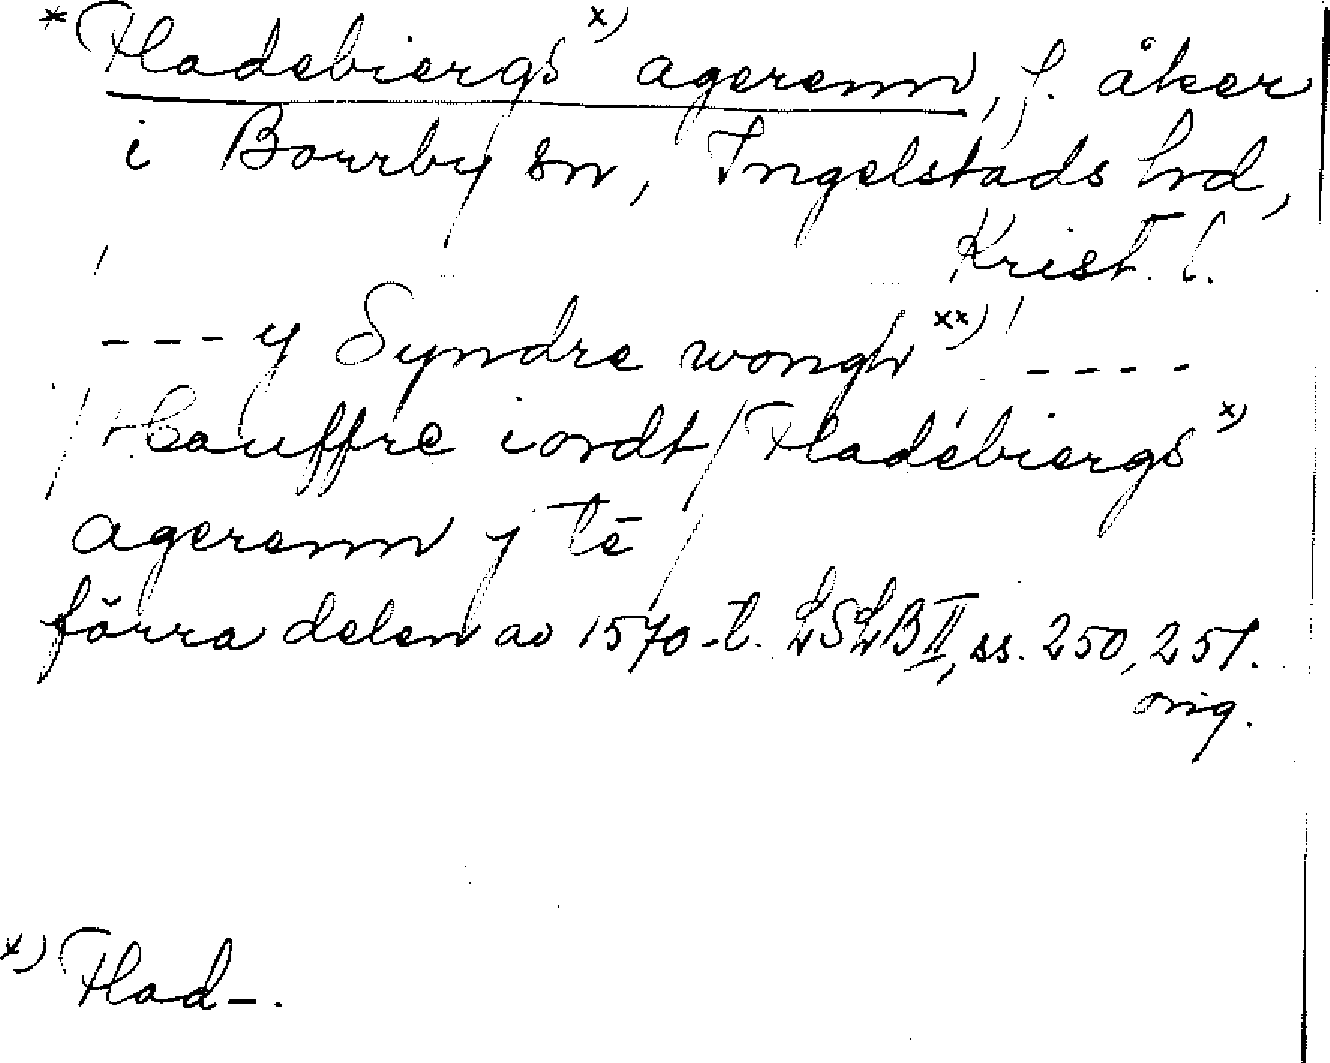 * Fladebiergs x) agerenn, f. åker
i Bourby sn, Ingelstads hd,
Krist. l.
--- y Syndre wongh xx) ----
/ Hauffre iordt / Fladebiergs x)
agerenn y tē /
förra delen av 1570-t. LSLB II, ss. 250, 251.
orig.
x) Flad-.